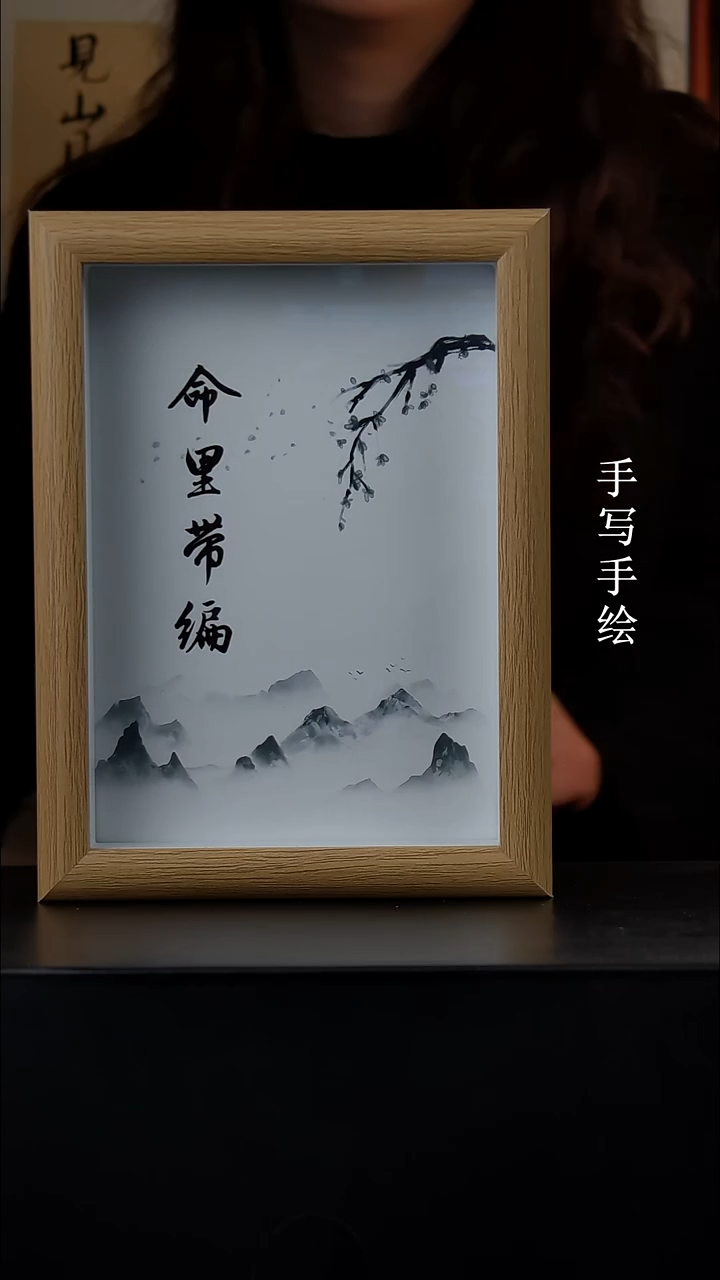 見山
命里带编
手写手绘